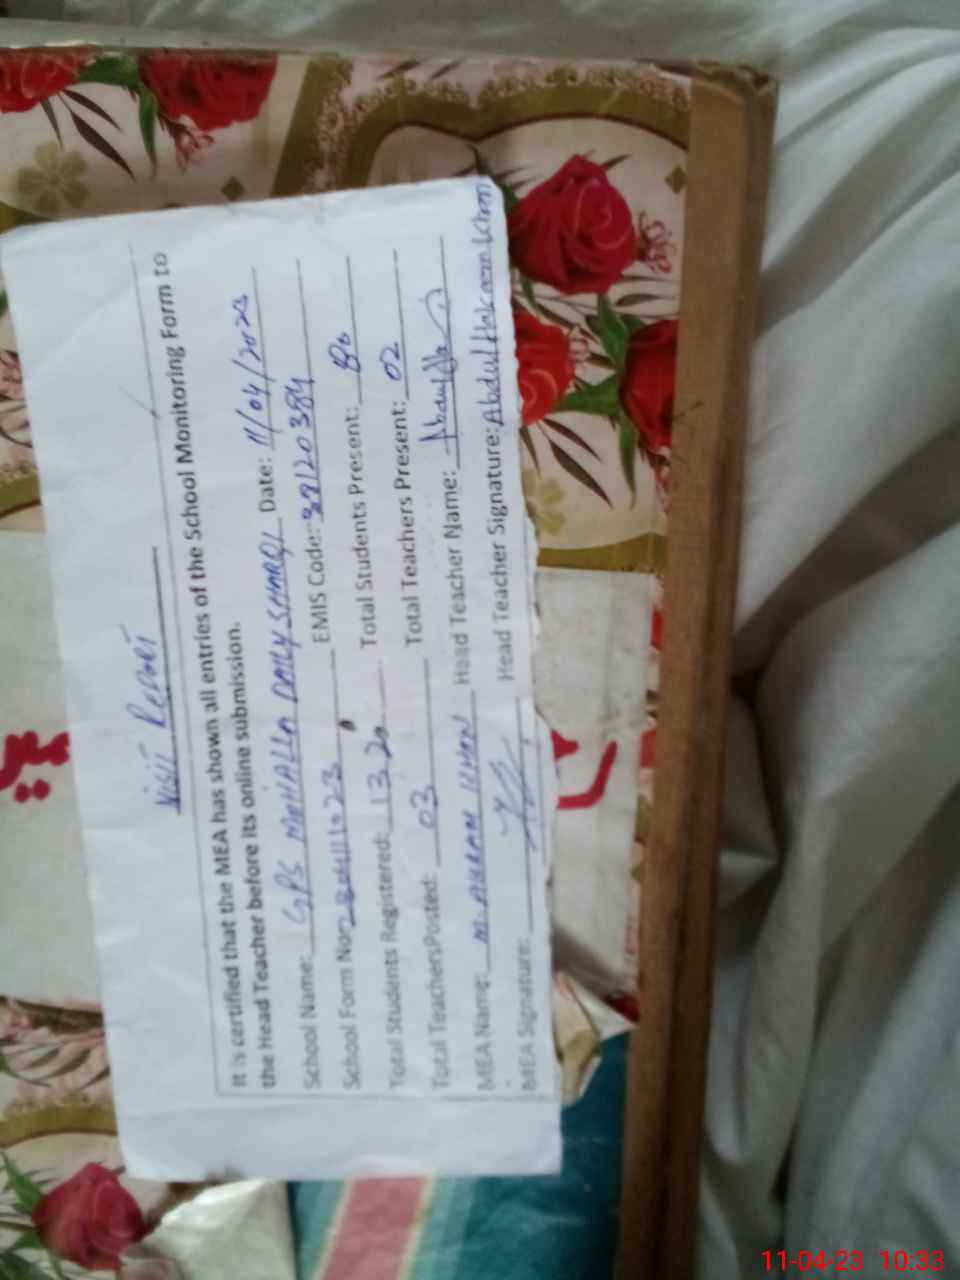 Visit Report
It is certified that the MEA has shown all entries of the School Monitoring Form to
the Head Teacher before its online submission.
School Name: GPS MOHALLA DAILY SHARQI Date: 11/04/2023
School Form No: EMIS Code: 39120384
Total Students Registered: 132 Total Students Present: 80
Total TeachersPosted: 03 Total Teachers Present: 02
MEA Name: M. AKRAM KHAN Head Teacher Name:
MEA Signature: Head Teacher Signature: Abdul Hakeem Khan
11-04-23 10:33